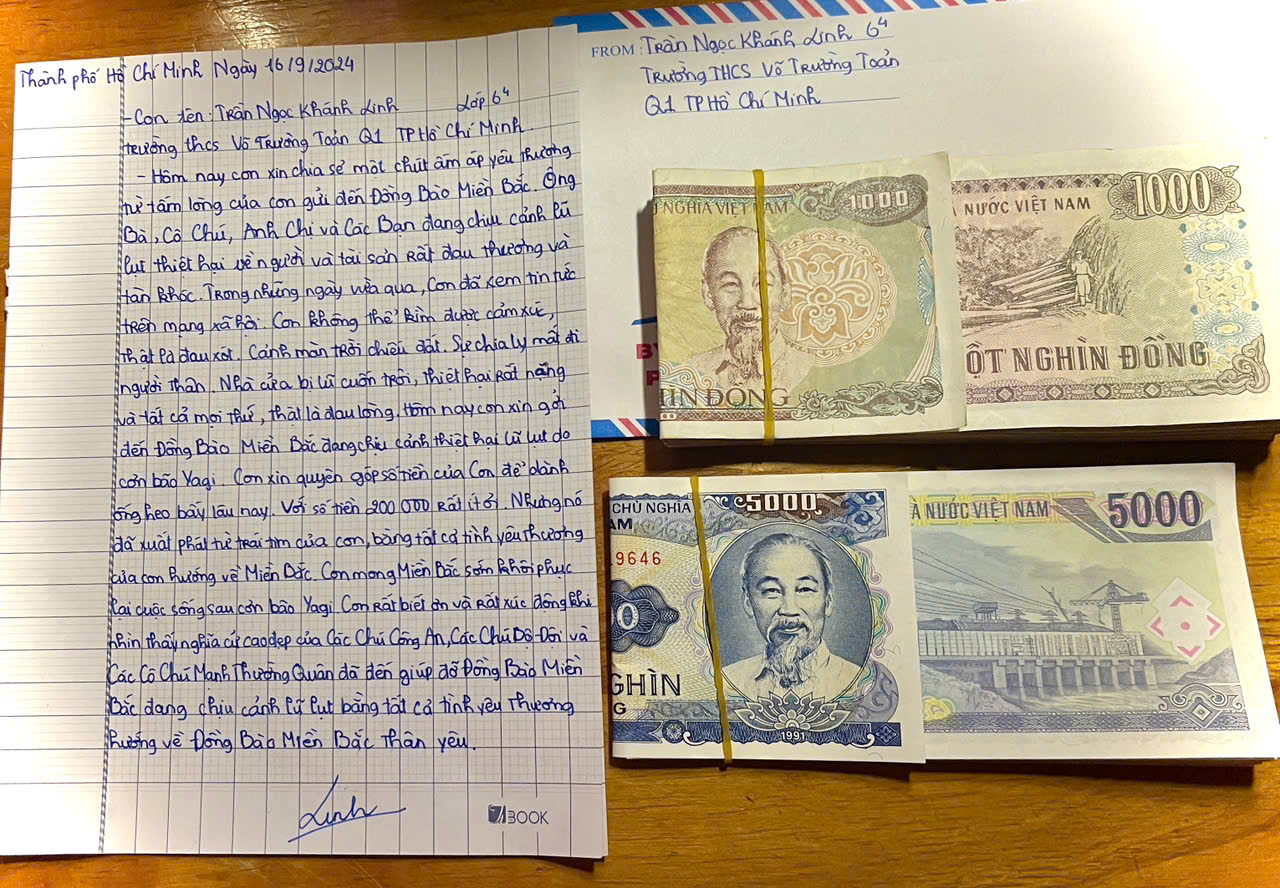 Thành phố Hồ Chí Minh Ngày 16/9/2024
- Con tên: Trần Ngọc Khánh Linh Lớp 6⁴
trường thcs Võ Trường Toản Q1 TP Hồ Chí Minh.
- Hôm nay con xin chia sẻ một chút ấm áp yêu thương
từ tấm lòng của con gửi đến Đồng Bào Miền Bắc. Ông
Bà, Cô Chú, Anh Chị và Các Bạn đang chịu cảnh lũ
lụt thiệt hại về người và tài sản Rất đau thương và
tàn khốc. Trong những ngày vừa qua, Con đã xem tin tức
trên mạng xã hội. Con không thể kìm được cảm xúc,
thật là đau xót. Cảnh màn trời chiếu đất. Sự chia ly mất đi
người thân. Nhà cửa bị lũ cuốn trôi, thiệt hại Rất nặng
và tất cả mọi thứ, thật là đau lòng. Hôm nay con xin gởi
đến Đồng Bào Miền Bắc đang chịu cảnh thiệt hại lũ lụt do
cơn bão Yagi. Con xin quyên góp số tiền của Con để dành
ống heo bấy lâu nay. Với số tiền 200 000 Rất ít ỏi. Nhưng nó
đã xuất phát từ trái tim của con, bằng tất cả tình yêu thương
của con hướng về Miền Bắc. Con mong Miền Bắc sớm khôi phục
lại cuộc sống sau cơn bão Yagi. Con Rất biết ơn và rất xúc động khi
nhìn thấy nghĩa cử cao đẹp của Các Chú Công An, Các Chú Bộ Đội và
Các Cô Chú Mạnh Thường Quân đã đến giúp đỡ Đồng Bào Miền
Bắc đang chịu cảnh lũ lụt bằng tất cả tình yêu Thương
hướng về Đồng Bào Miền Bắc Thân yêu.
Linh
BOOK
FROM: Trần Ngọc Khánh Linh 6⁴
Trường THCS Võ Trường Toản
Q1 TP Hồ Chí Minh
NGHĨA VIỆT NAM
1000
ÌN ĐỒNG
NƯỚC VIỆT NAM
1000
ỘT NGHÌN ĐỒNG
CHỦ NGHĨA
AM
5000
9646
0
GHÌN
G
1991
A NƯỚC VIỆT NAM
5000